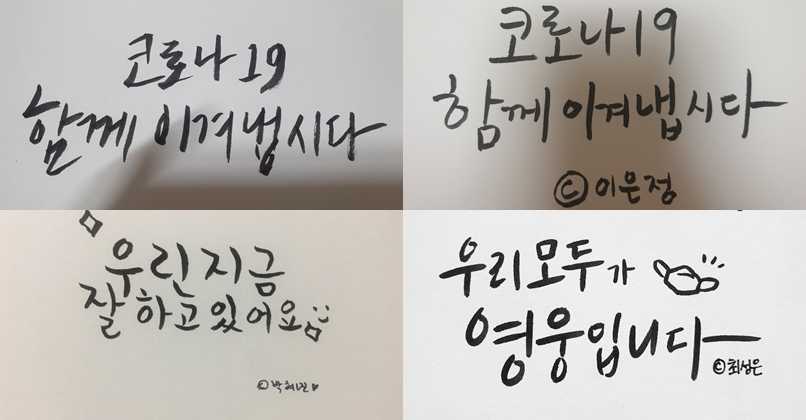 코로나19
함께 이겨냅시다
코로나19
함께 이겨냅시다
ⓒ 이은정
우린 지금
잘 하고 있어요
ⓒ 박혜진♥
우리 모두가
영웅입니다
ⓒ 최성은